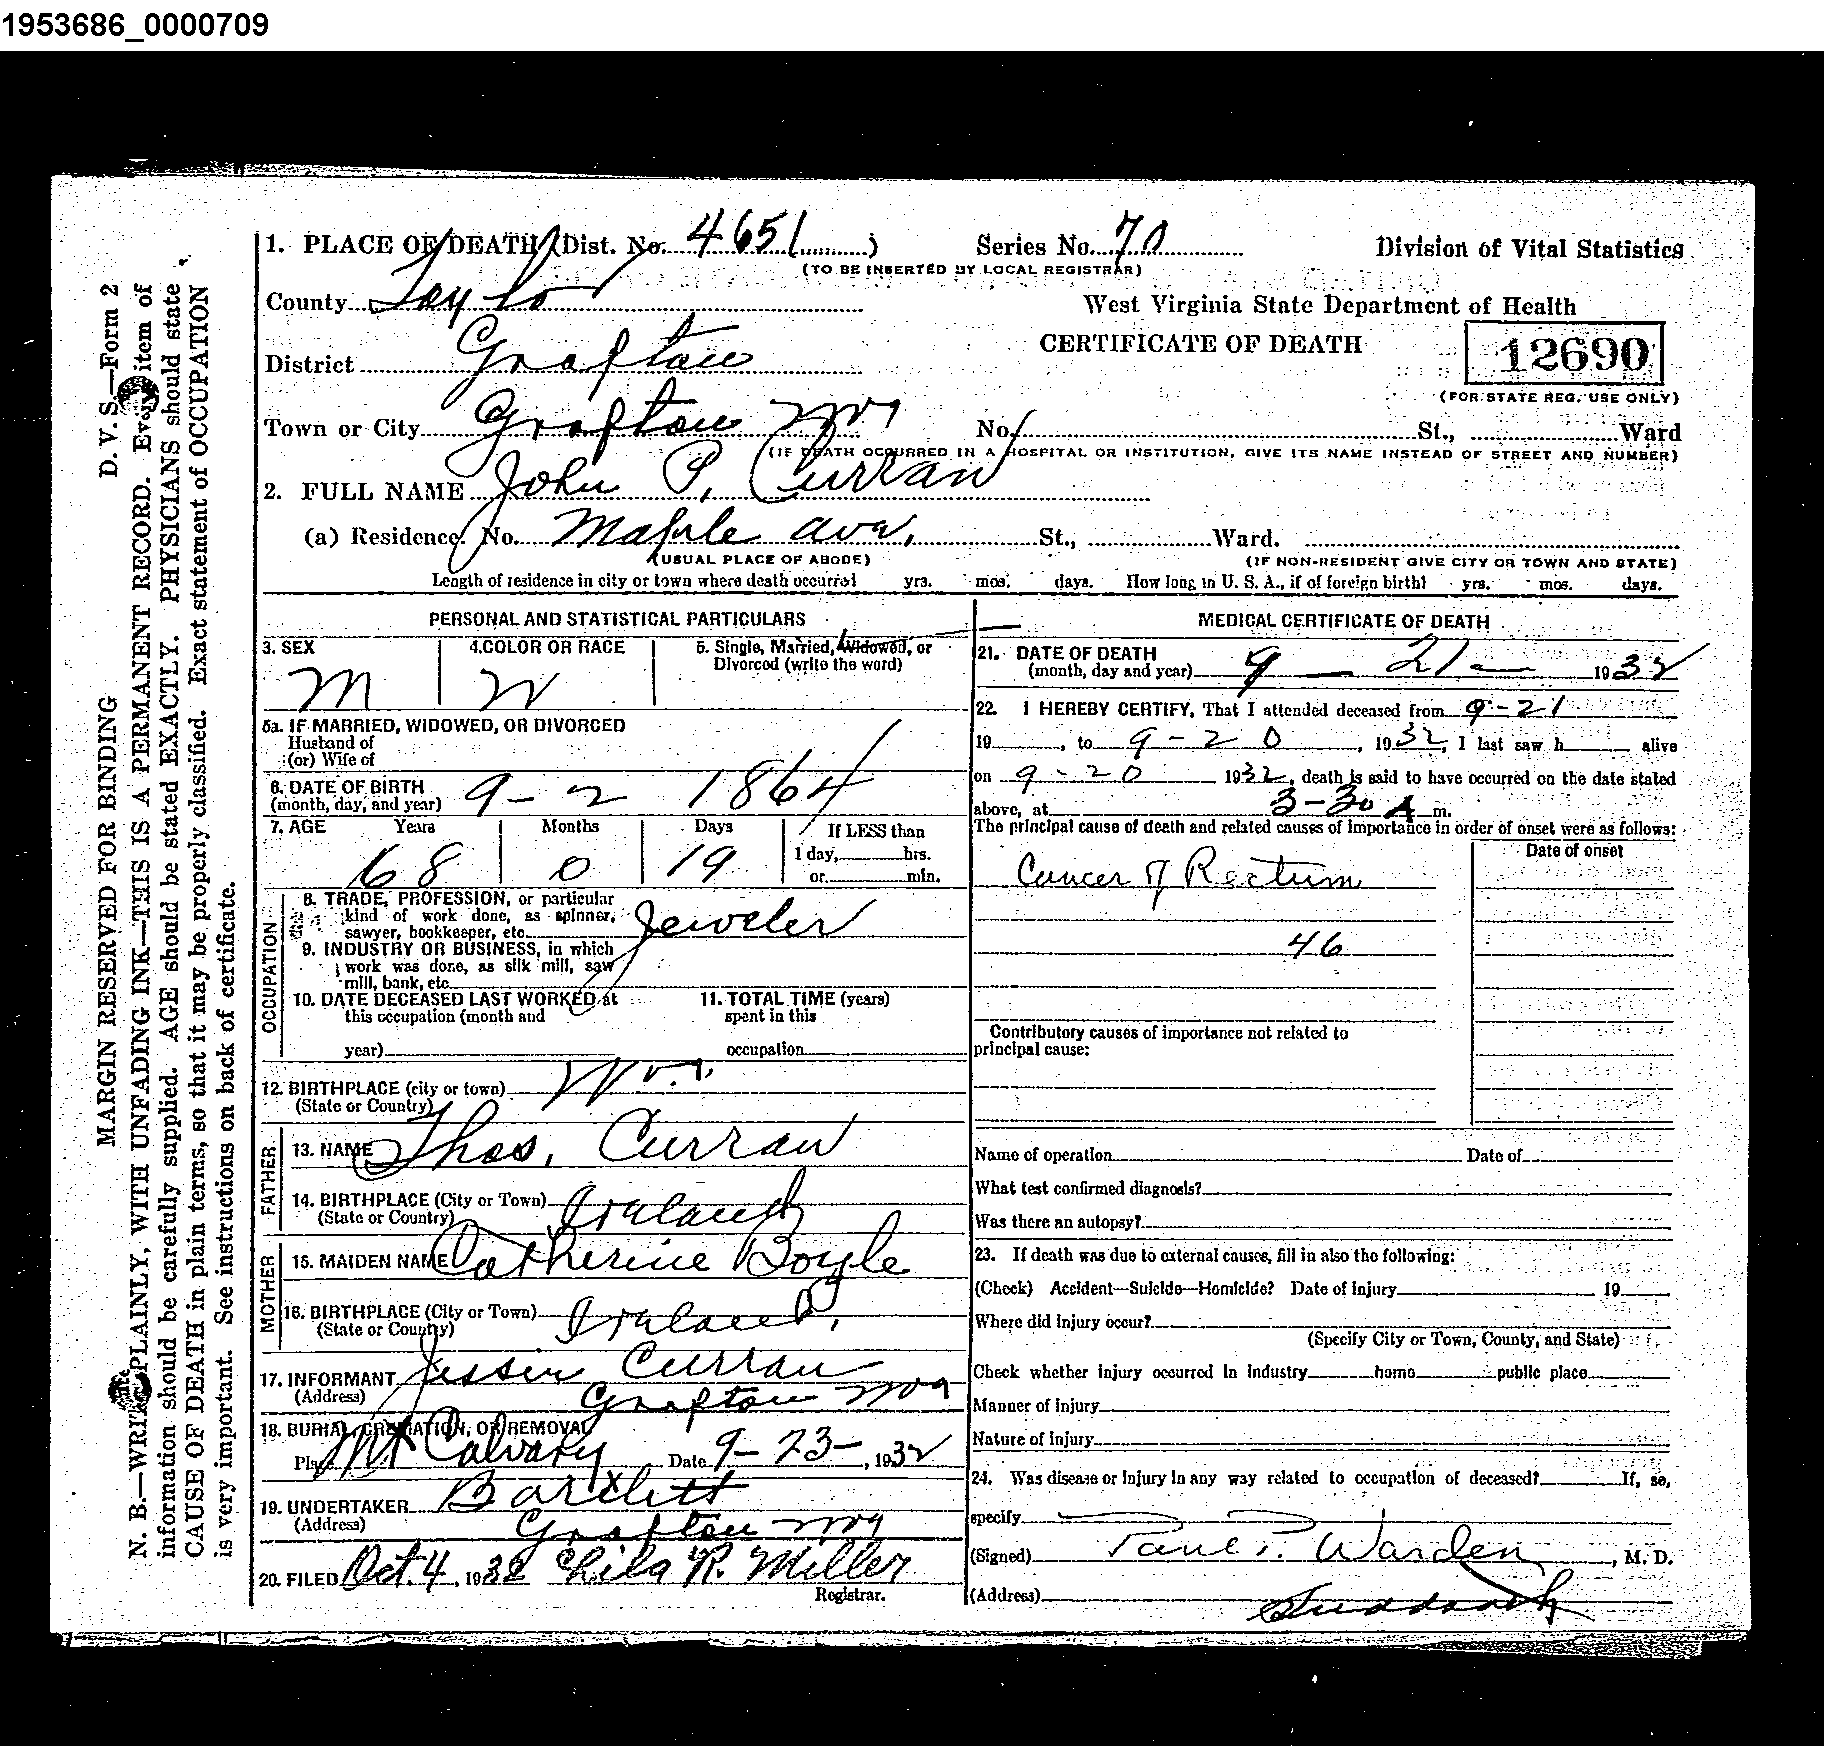 1953686_0000709
1. PLACE OF DEATH (Dist. No. 4651 ) Series No. 70 Division of Vital Statistics
(TO BE INSERTED BY LOCAL REGISTRAR)
County Taylor West Virginia State Department of Health
District Grafton CERTIFICATE OF DEATH 12690
(FOR STATE REG. USE ONLY)
Town or City Grafton WVa No. St., Ward
(IF DEATH OCCURRED IN A HOSPITAL OR INSTITUTION, GIVE ITS NAME INSTEAD OF STREET AND NUMBER)
2. FULL NAME John P. Curran
(a) Residence. No. Maple Ave, St., Ward.
(USUAL PLACE OF ABODE) (IF NON-RESIDENT GIVE CITY OR TOWN AND STATE)
Length of residence in city or town where death occurred yrs. mos. days. How long in U. S. A., if of foreign birth? yrs. mos. days.
PERSONAL AND STATISTICAL PARTICULARS
3. SEX 4. COLOR OR RACE 5. Single, Married, Widowed, or
Divorced (write the word)
M W
5a. IF MARRIED, WIDOWED, OR DIVORCED
Husband of
(or) Wife of
6. DATE OF BIRTH
(month, day, and year) 9-2 1864
7. AGE Years Months Days If LESS than
1 day, hrs.
or min.
68 0 19
OCCUPATION
8. TRADE, PROFESSION, or particular
kind of work done, as spinner,
sawyer, bookkeeper, etc. Jeweler
9. INDUSTRY OR BUSINESS, in which
work was done, as silk mill, saw
mill, bank, etc.
10. DATE DECEASED LAST WORKED at 11. TOTAL TIME (years)
this occupation (month and spent in this
year) occupation
12. BIRTHPLACE (city or town) W.Va.
(State or Country)
FATHER
13. NAME Thos. Curran
14. BIRTHPLACE (City or Town) Ireland
(State or Country)
MOTHER
15. MAIDEN NAME Catherine Boyle
16. BIRTHPLACE (City or Town) Ireland,
(State or Country)
17. INFORMANT Curran
(Address) Grafton WVa
18. BURIAL, CREMATION, OR REMOVAL
Place Mt Calvary Date 9-23-, 1932
19. UNDERTAKER Bartlett
(Address) Grafton WVa
20. FILED Oct. 4, 1932 R. Miller
Registrar.
MEDICAL CERTIFICATE OF DEATH
21. DATE OF DEATH
(month, day and year) 9 - 21 - 1932
22. I HEREBY CERTIFY, That I attended deceased from 9-21
19 , to 9-20 , 1932, I last saw h alive
on 9-20 1932, death is said to have occurred on the date stated
above, at 3-30 A m.
The principal cause of death and related causes of importance in order of onset were as follows:
Date of onset
Cancer of Rectum
46
Contributory causes of importance not related to
principal cause:
Name of operation Date of
What test confirmed diagnosis?
Was there an autopsy?
23. If death was due to external causes, fill in also the following:
(Check) Accident—Suicide—Homicide? Date of injury 19
Where did injury occur?
(Specify City or Town, County, and State)
Check whether injury occurred in industry home public place
Manner of injury
Nature of injury
24. Was disease or injury in any way related to occupation of deceased? If, so,
specify
(Signed) Paul P. Warden, M. D.
(Address)
D. V. S.—Form 2
MARGIN RESERVED FOR BINDING
N. B.—WRITE PLAINLY, WITH UNFADING INK—THIS IS A PERMANENT RECORD. Every item of
information should be carefully supplied. AGE should be stated EXACTLY. PHYSICIANS should state
CAUSE OF DEATH in plain terms, so that it may be properly classified. Exact statement of OCCUPATION
is very important. See instructions on back of certificate.